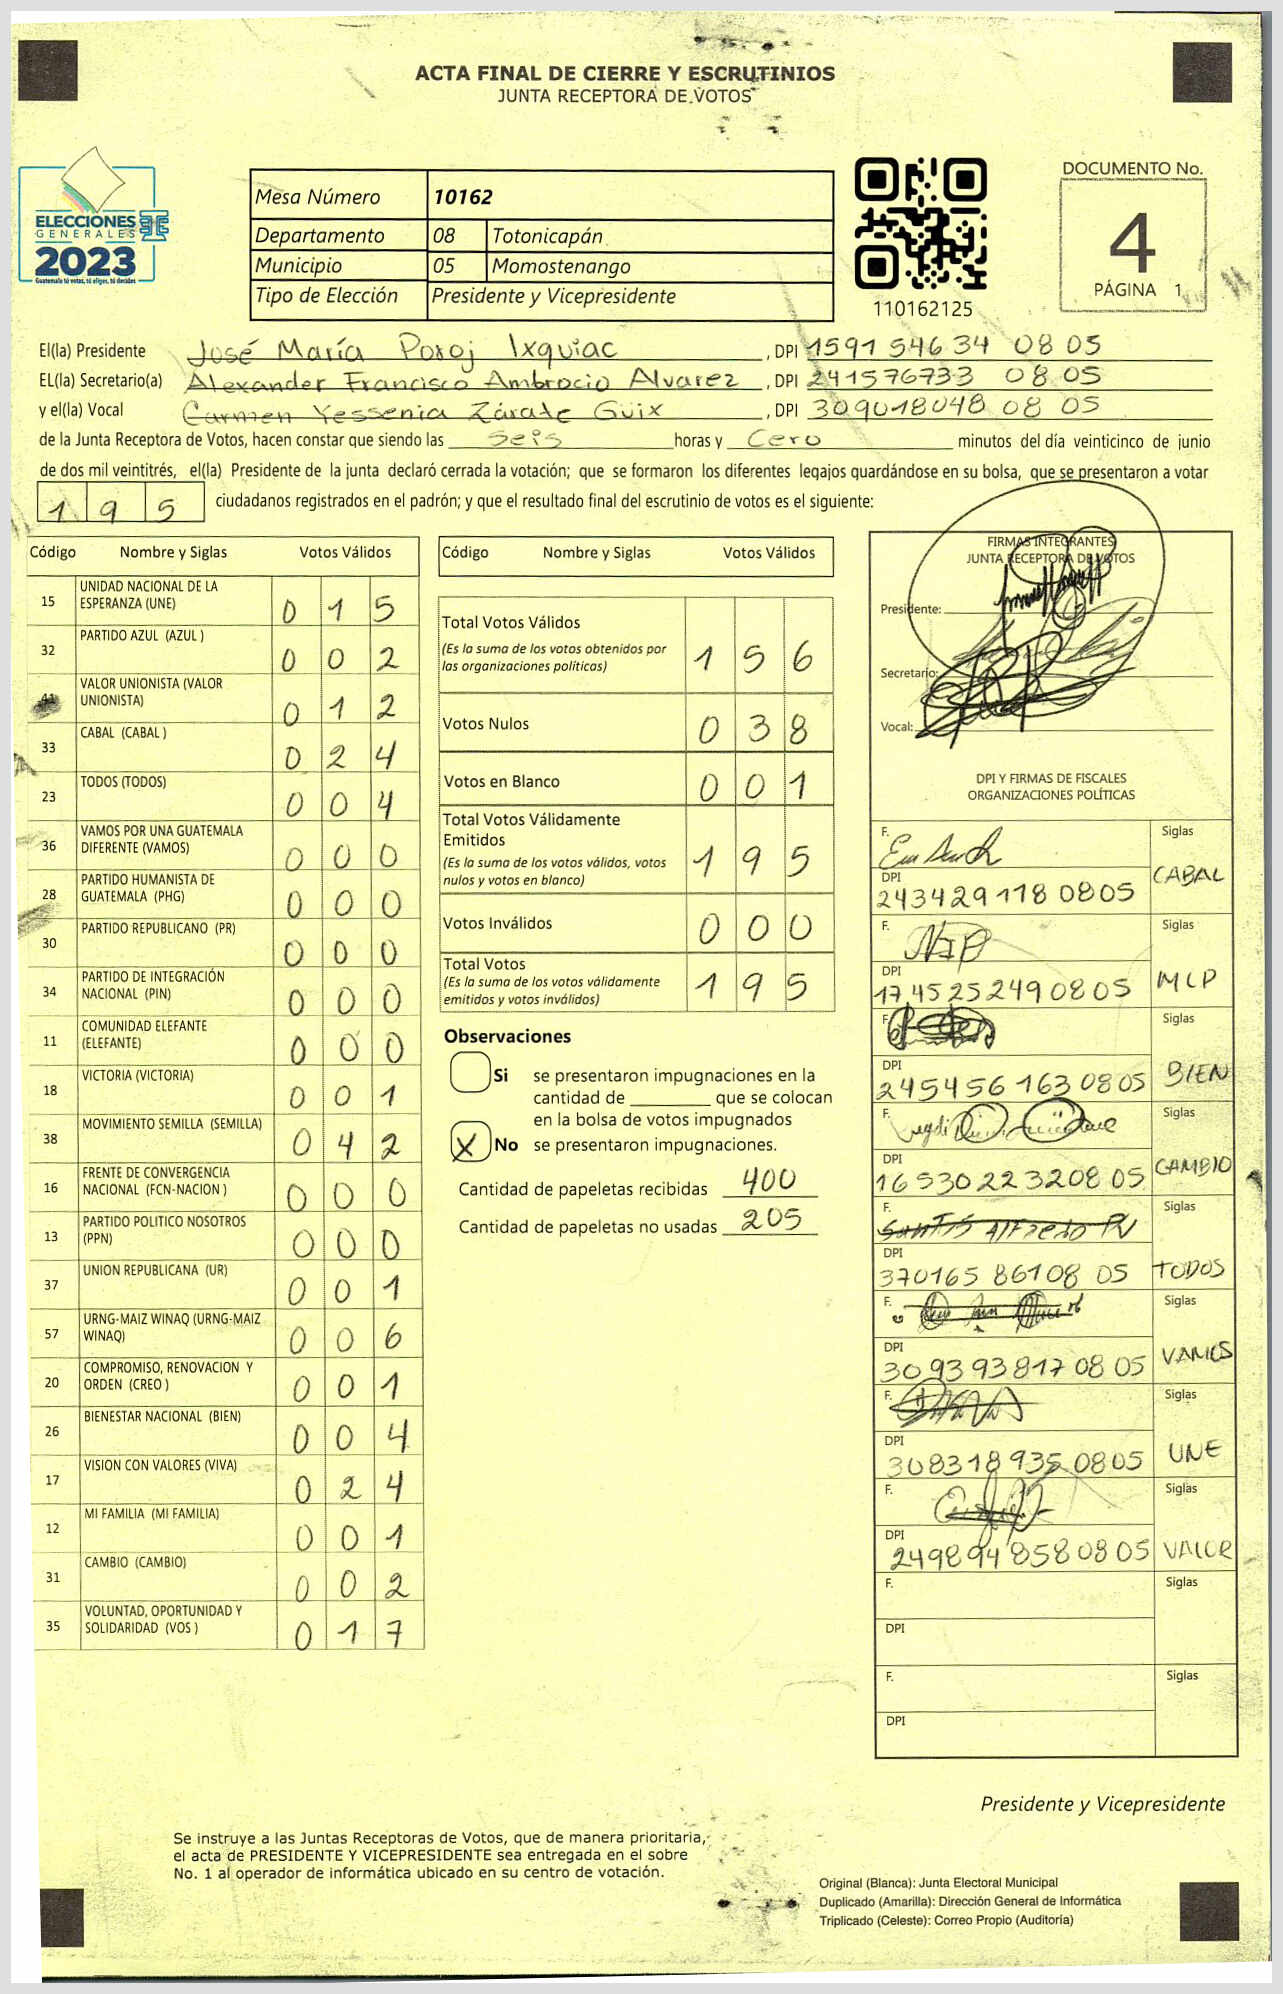 ACTA FINAL DE CIERRE Y ESCRUTINIOS
JUNTA RECEPTORA DE VOTOS
ELECCIONES
GENERALES
2023
Guatemala tú votas, tú eliges, tú decides
Mesa Número 10162
Departamento 08 Totonicapán
Municipio 05 Momostenango
Tipo de Elección Presidente y Vicepresidente
110162125
DOCUMENTO No.
4
PÁGINA 1
El(la) Presidente José María Poroj Ixquiac , DPI 1591 54634 0805
EL(la) Secretario(a) Alexander Francisco Ambrocio Alvarez , DPI 241576733 0805
y el(la) Vocal Carmen Yessenia Zárate Guix , DPI 309018048 08 05
de la Junta Receptora de Votos, hacen constar que siendo las seis horas y Cero minutos del día veinticinco de junio
de dos mil veintitrés, el(la) Presidente de la junta declaró cerrada la votación; que se formaron los diferentes legajos quardándose en su bolsa, que se presentaron a votar
195 ciudadanos registrados en el padrón; y que el resultado final del escrutinio de votos es el siguiente:
Código Nombre y Siglas Votos Válidos
15 UNIDAD NACIONAL DE LA ESPERANZA (UNE) 015
32 PARTIDO AZUL (AZUL ) 002
41 VALOR UNIONISTA (VALOR UNIONISTA) 012
33 CABAL (CABAL ) 024
23 TODOS (TODOS) 004
36 VAMOS POR UNA GUATEMALA DIFERENTE (VAMOS) 000
28 PARTIDO HUMANISTA DE GUATEMALA (PHG) 000
30 PARTIDO REPUBLICANO (PR) 000
34 PARTIDO DE INTEGRACIÓN NACIONAL (PIN) 000
11 COMUNIDAD ELEFANTE (ELEFANTE) 000
18 VICTORIA (VICTORIA) 001
38 MOVIMIENTO SEMILLA (SEMILLA) 042
16 FRENTE DE CONVERGENCIA NACIONAL (FCN-NACION ) 000
13 PARTIDO POLITICO NOSOTROS (PPN) 000
37 UNION REPUBLICANA (UR) 001
57 URNG-MAIZ WINAQ (URNG-MAIZ WINAQ) 006
20 COMPROMISO, RENOVACION Y ORDEN (CREO ) 001
26 BIENESTAR NACIONAL (BIEN) 004
17 VISION CON VALORES (VIVA) 024
12 MI FAMILIA (MI FAMILIA) 001
31 CAMBIO (CAMBIO) 002
35 VOLUNTAD, OPORTUNIDAD Y SOLIDARIDAD (VOS ) 017
Código Nombre y Siglas Votos Válidos
Total Votos Válidos 156
(Es la suma de los votos obtenidos por
las organizaciones políticas)
Votos Nulos 038
Votos en Blanco 001
Total Votos Válidamente
Emitidos 195
(Es la suma de los votos válidos, votos
nulos y votos en blanco)
Votos Inválidos 000
Total Votos 195
(Es la suma de los votos válidamente
emitidos y votos inválidos)
Observaciones
Si se presentaron impugnaciones en la
cantidad de ________ que se colocan
en la bolsa de votos impugnados
X No se presentaron impugnaciones.
Cantidad de papeletas recibidas 400
Cantidad de papeletas no usadas 205
FIRMAS INTEGRANTES
JUNTA RECEPTORA DE VOTOS
Presidente:
Secretario:
Vocal:
DPI Y FIRMAS DE FISCALES
ORGANIZACIONES POLÍTICAS
F. Siglas
DPI CABAL
243429118 0805
F. Siglas
DPI MLP
1745252490805
F. Siglas
DPI BIEN
245456 163 0805
F. Siglas
DPI CAMBIO
1653022320805
F. Siglas
DPI TODOS
370165 86108 05
F. Siglas
DPI VAMOS
30 93 93 817 08 05
F. Siglas
DPI UNE
308318 935 0805
F. Siglas
DPI VALOR
249894 858 0805
F. Siglas
DPI
F. Siglas
DPI
Presidente y Vicepresidente
Se instruye a las Juntas Receptoras de Votos, que de manera prioritaria,
el acta de PRESIDENTE Y VICEPRESIDENTE sea entregada en el sobre
No. 1 al operador de informática ubicado en su centro de votación.
Original (Blanca): Junta Electoral Municipal
Duplicado (Amarilla): Dirección General de Informática
Triplicado (Celeste): Correo Propio (Auditoría)